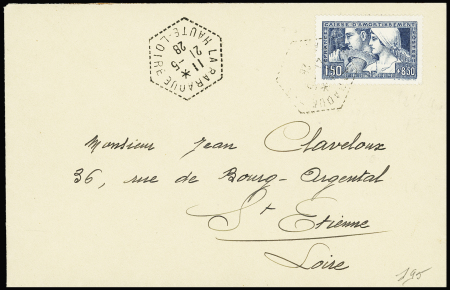 LA BARAQUE
11 *
21 -5
28
HAUTE-LOIRE
CAISSE D'AMORTISSEMENT
1,50 +8,50
Monsieur Jean Claveloux
36, rue de Bourg-Argental
St Etienne
Loire
195